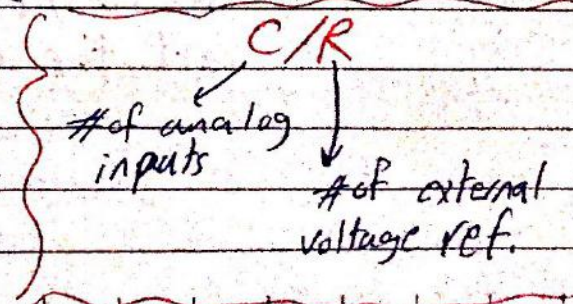 C/R
#of analog
inputs
#of external
voltage ref.